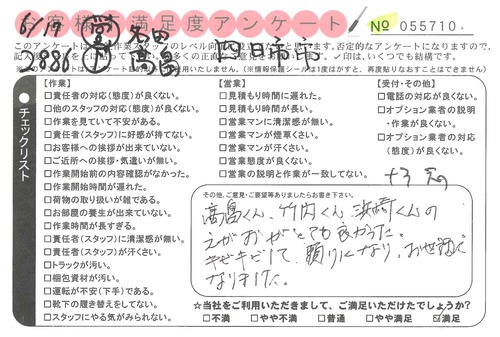 お客様不満足度アンケート
No 055710
6/19
営
高畠
四日市市
【作業】
□責任者の対応(態度)が良くない。
□他のスタッフの対応(態度)が良くない。
□作業を見ていて不安がある。
□責任者(スタッフ)に好感が持てない。
□お客様への挨拶が出来ていない。
□ご近所への挨拶・気遣いが無い。
□作業開始前の内容確認がなかった。
□作業開始時間が遅れた。
□荷物の取り扱いが雑である。
□お部屋の養生が出来ていない。
□作業時間が長すぎる。
□責任者(スタッフ)に清潔感が無い。
□責任者(スタッフ)が汗くさい。
□トラックが汚い。
□梱包資材が汚い。
□運転が不安(下手)である。
□靴下の履き替えをしてない。
□スタッフにやる気がみられない。
チェックリスト
【営業】
□見積もり時間に遅れた。
□見積もり時間が長い。
□営業マンに清潔感が無い。
□営業マンが煙草くさい。
□営業マンが汗くさい。
□営業態度が良くない。
□営業の説明と作業が一致してない。
【受付・その他】
□電話の対応が良くない。
□オプション業者の説明
・作業が良くない。
□オプション業者の対応
(態度)が良くない。
その他、ご意見・ご要望等ありましたらお書き下さい。
高畠くん、竹内くん、浜崎くんの
3人がとても良かった。
キビキビして、頼りになり、お世話に
なりました。
☆当社をご利用いただきまして、ご満足いただけたでしょうか?
□不満 □やや不満 □普通 □やや満足 ☑満足